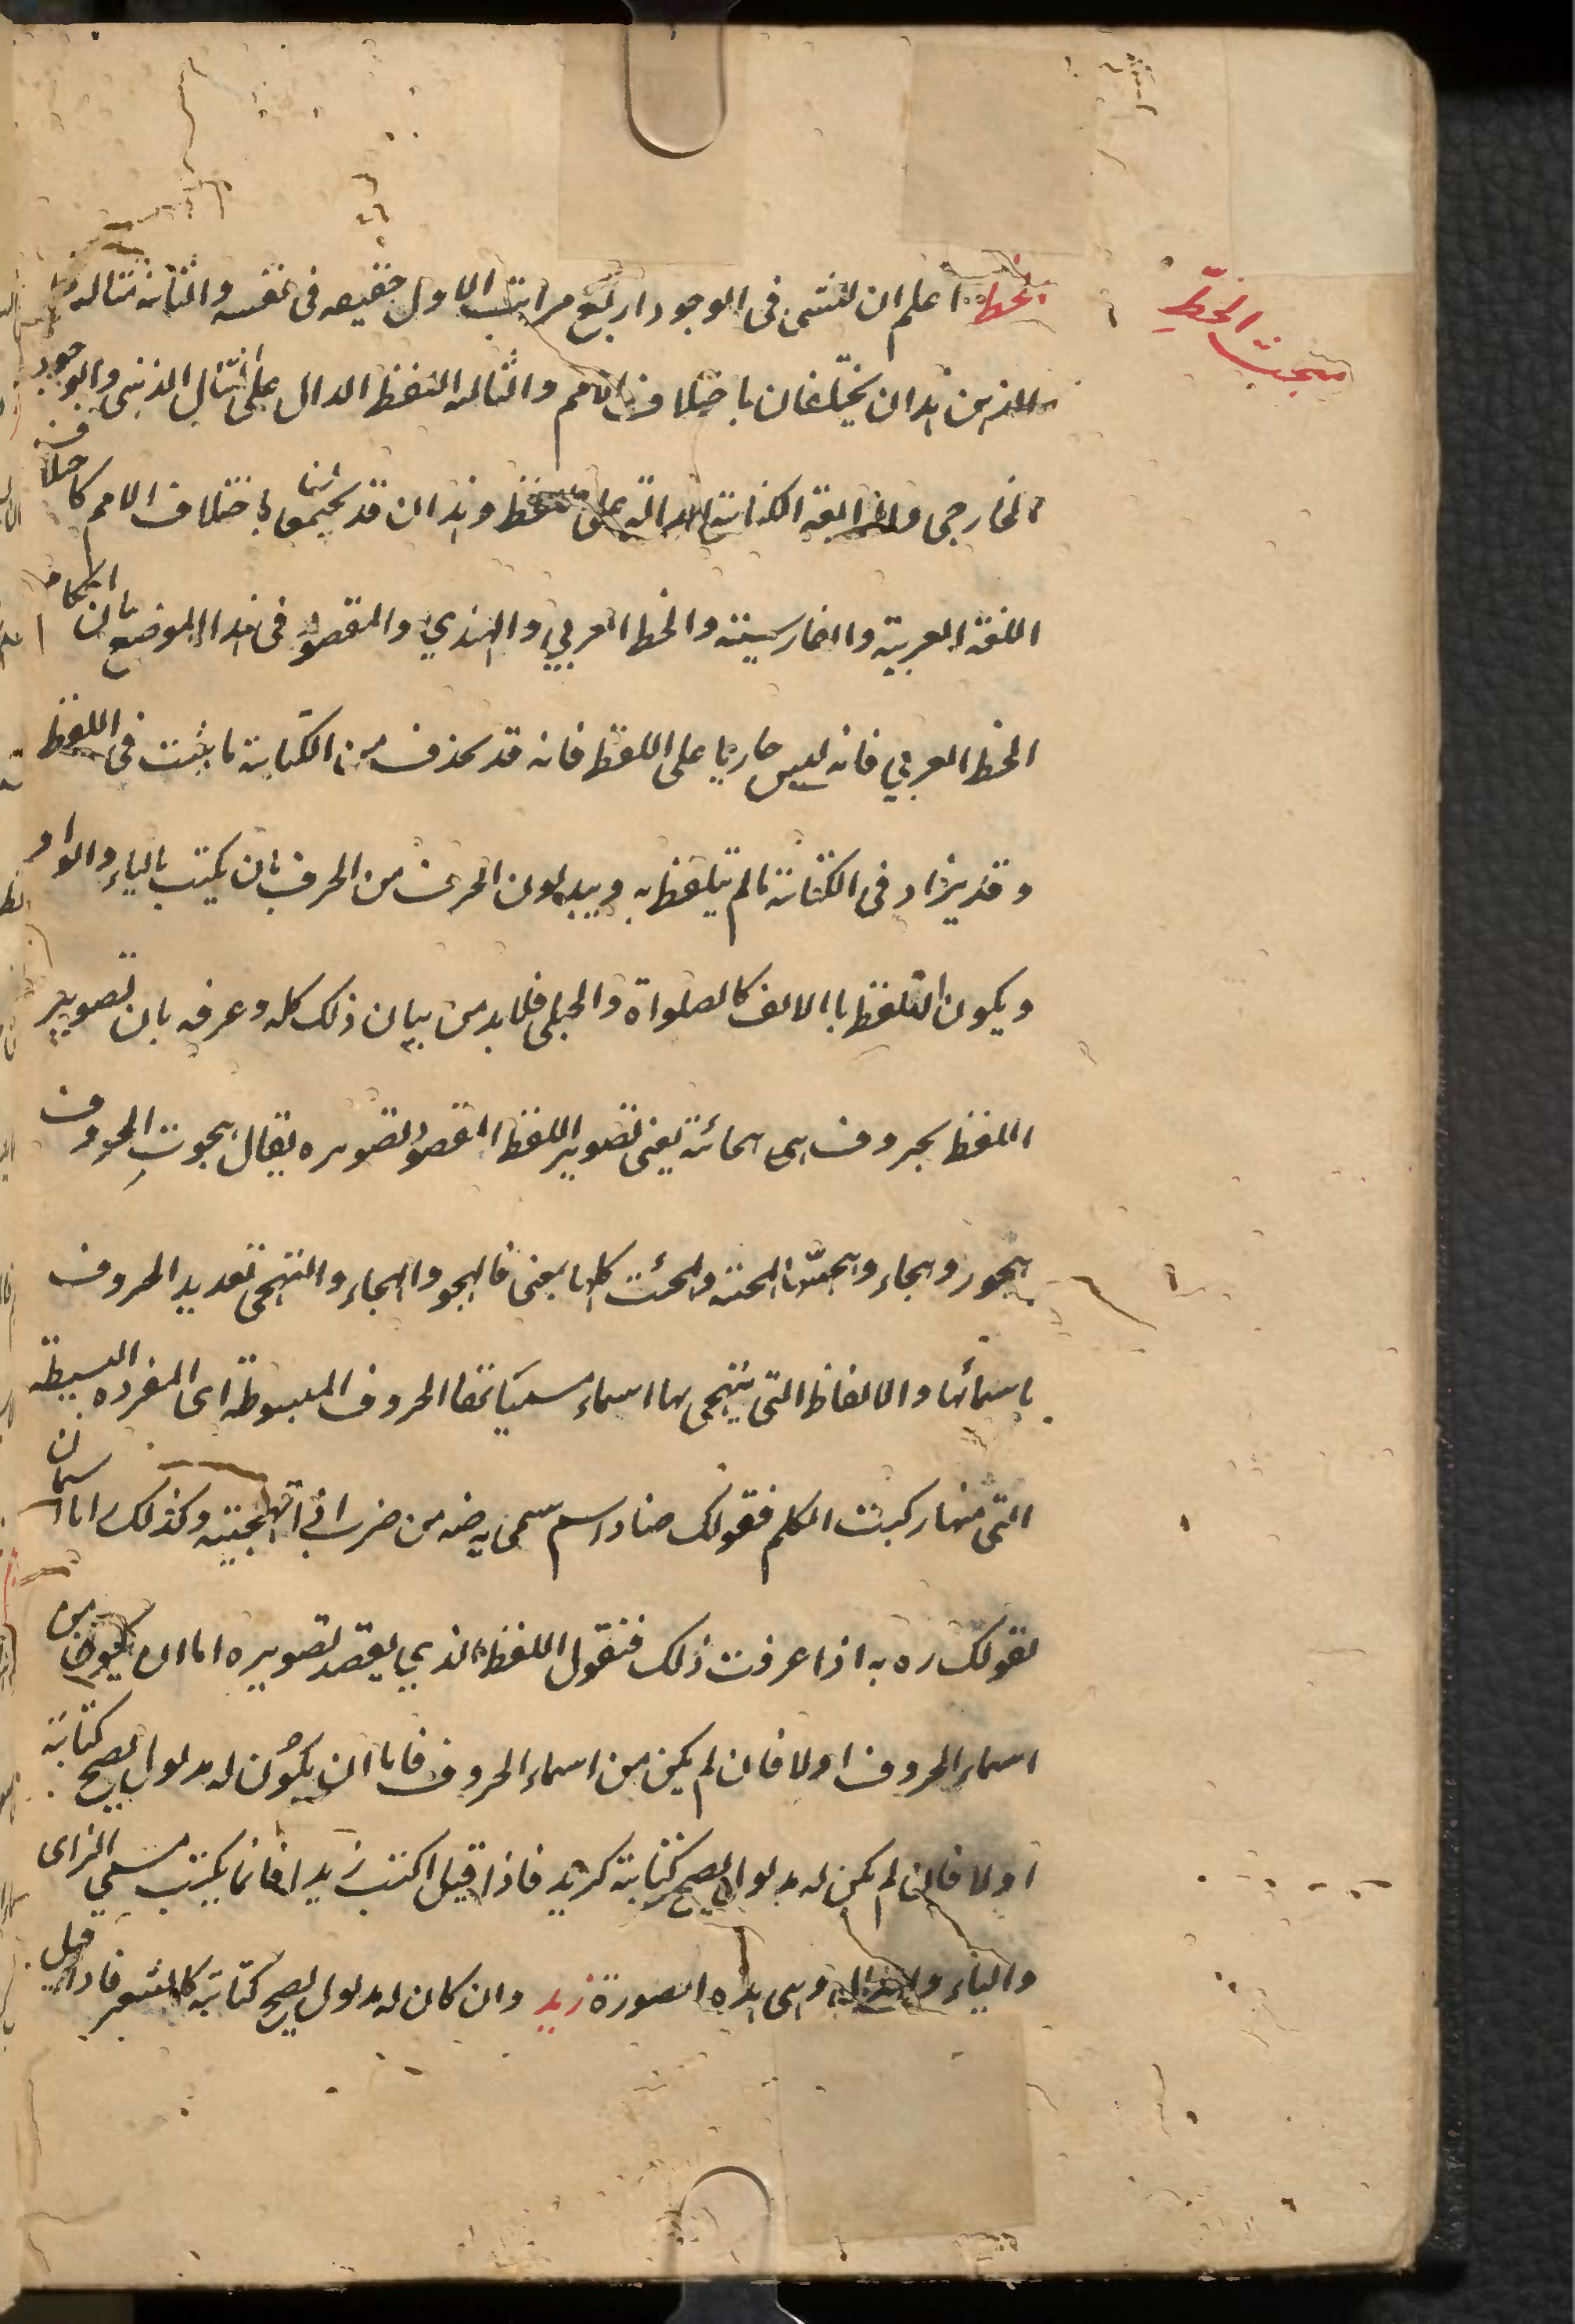 مبحث الخطّ
الخط اعلم ان للشئ فى الوجود اربع مراتب الاول حقيقه فى نفسه والثانية مثاله فى
الذهن وهذان لا يختلفان باختلاف الامم والثالثة اللفظ الدال على المثال الذهنى والوجود
الخارجى والرابعة الكتابة الدالة على اللفظ وهذان قد يختلفان باختلاف الامم كاختلاف
اللغة العربية والفارسيتة والخط العربي والهندي والمقصود فى هذا الموضع بيان احكام
الخط العربي فانه ليس جاريا على اللفظ فانه قد يحذف من الكتابة ما يثبت فى اللفظ
وقد يزاد فى الكتابة ما لم يتلفظ به ويبدلون الحرف من الحرف بان يكتب بالياء والواو
ويكون التلفظ باالالف كالصلواة والحبلى فلا بد من بيان ذلك كله وعرفه بان تصوير
اللفظ بحروف هجائه يعنى تصوير اللفظ المقصود تصويره يقال هجوت الحروف
هجوا وهجاء وهجيتها وتهجيت كلها بمعنى فالهجو والهجاء والتهجى تعديد الحروف
باسمائها والالفاظ التى يتهجى بها اسماء مسمياتها الحروف المبسوطة اى المفرده البسيطة
التى منها ركبت الكلم فقولك ضاد اسم سمى به ضه من ضرب اذا تهجيته وكذلك را با اسمان
لقولك ره به اذا عرفت ذلك فنقول اللفظ الذي يقصد تصويره اما ان يكون من
اسماء الحروف اولا فان لم يكن من اسماء الحروف فاما ان يكون له مدلول يصح كتابة
اولا فان لم يكن له مدلول يصح كتابة كزيد فاذا قيل اكتب زيدا فانما يكتب مسمى الزاى
والياء والدال وهى هذه الصورة زيد وان كان له مدلول يصح كتابته كالشعر فاذا قيل